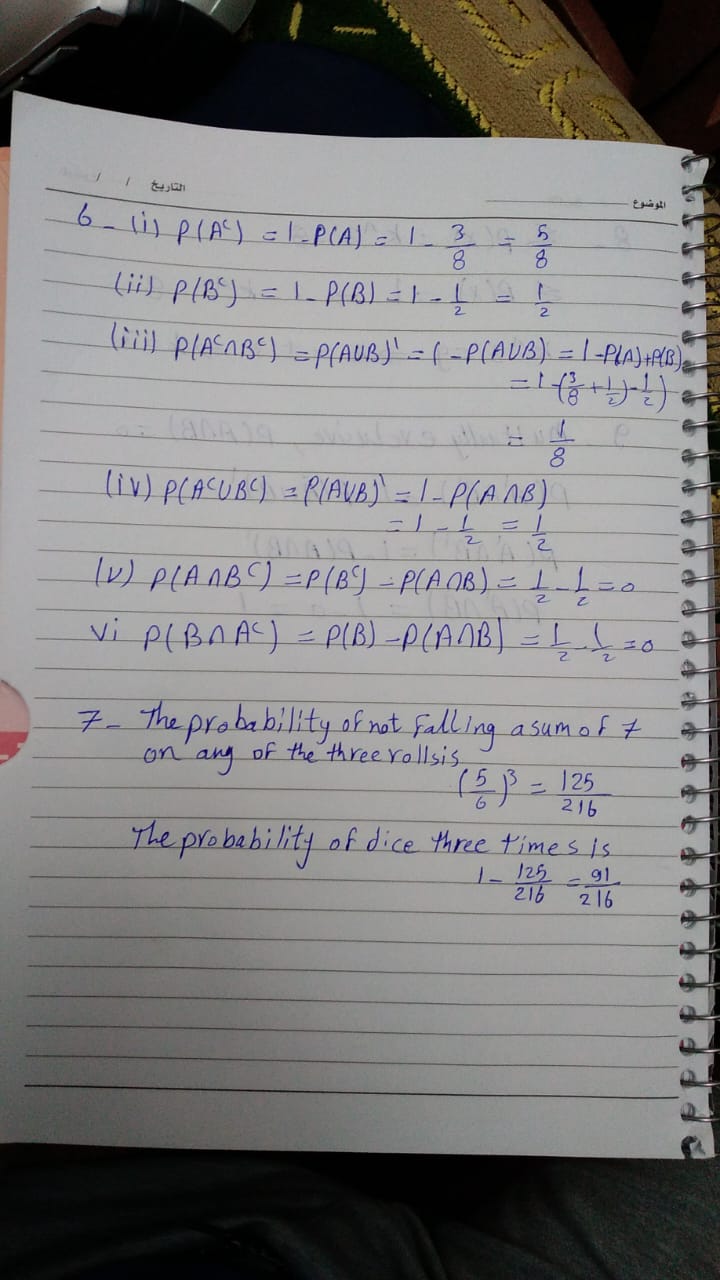 التاريخ / /
الموضوع
6 - (i) P(Aᶜ) = 1 - P(A) = 1 - 3/8 = 5/8
(ii) P(Bᶜ) = 1 - P(B) = 1 - 1/2 = 1/2
(iii) P(Aᶜ∩Bᶜ) = P(AUB)' = 1 - P(AUB) = 1 - P(A)+P(B)
= 1 - (3/8 + 1/2) - 1/2)
= 1/8
(iv) P(AᶜUBᶜ) = P(AUB)' = 1 - P(A∩B)
= 1 - 1/2 = 1/2
(v) P(A∩Bᶜ) = P(Bᶜ) - P(A∩B) = 1/2 - 1/2 = 0
vi P(B∩Aᶜ) = P(B) - P(A∩B) = 1/2 - 1/2 = 0
7 - The probability of not falling a sum of 7
on ang of the three rollsis
(5/6)³ = 125/216
The probability of dice three times is
1 - 125/216 = 91/216